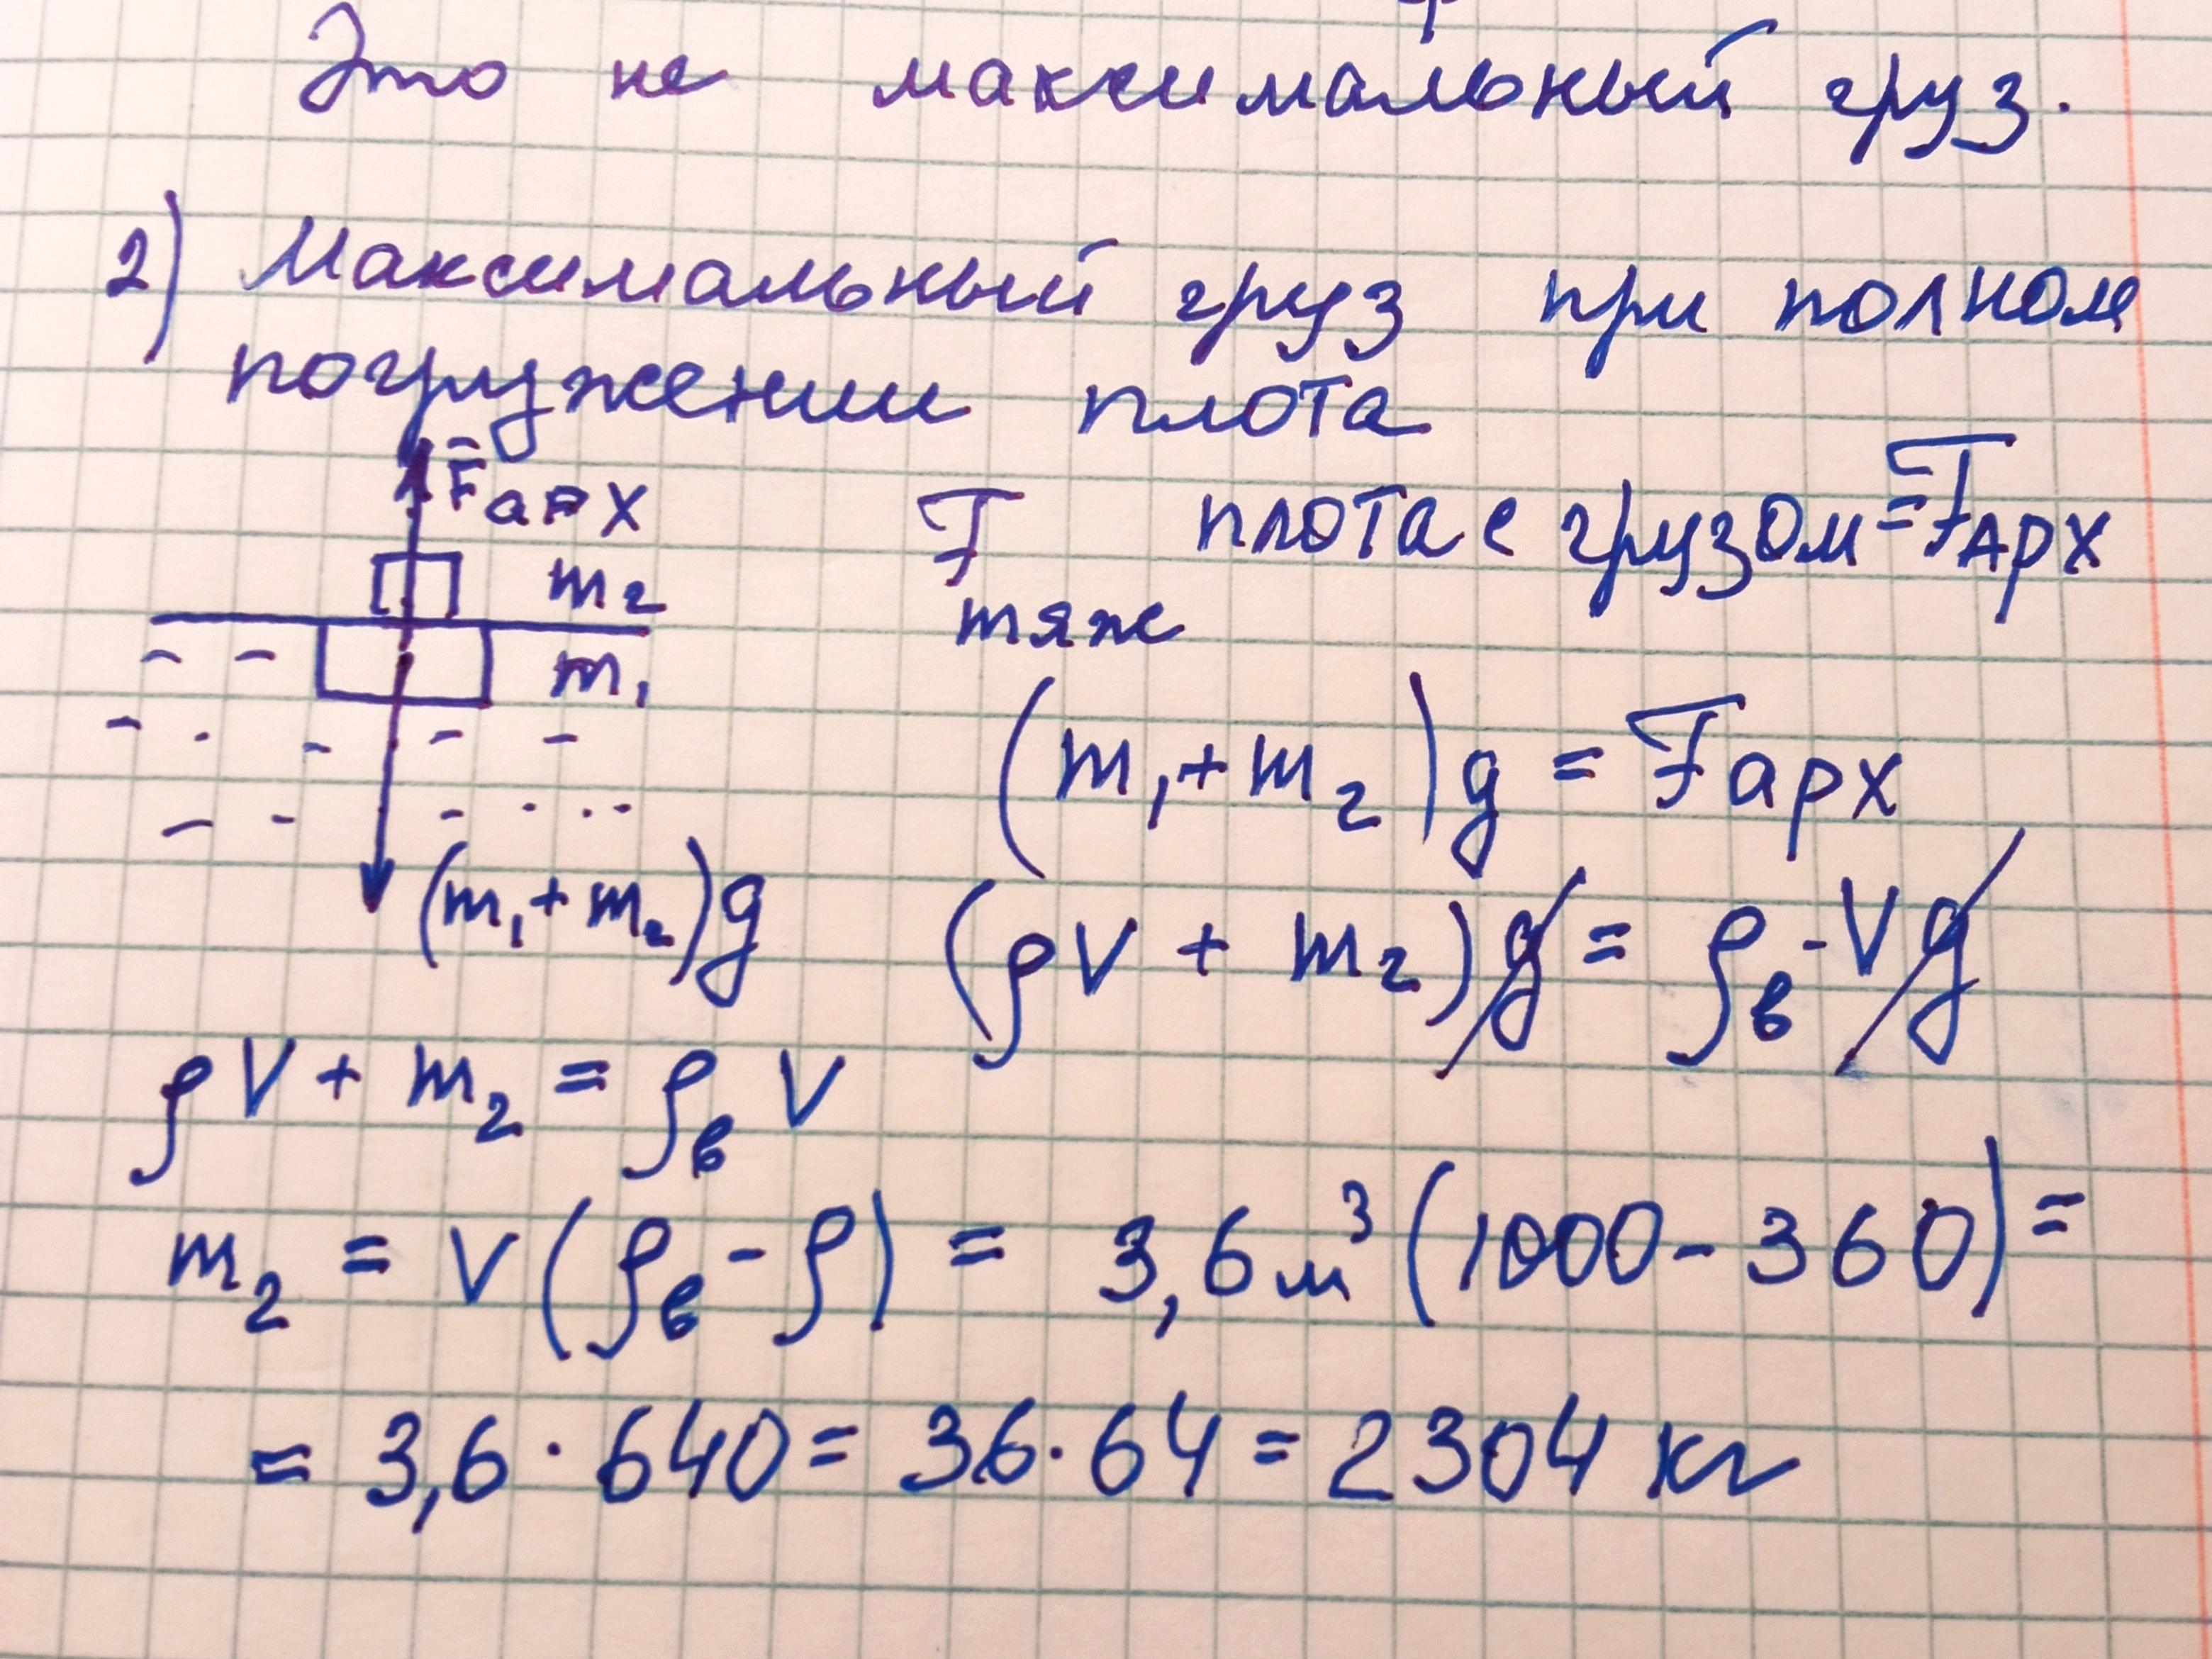 Это не максимальный груз.
2) Максимальный груз при полном
погружении плота
F̄арх
Fтяж плота с грузом = FАрх
m₂
m₁
(m₁ + m₂)g = Fарх
(m₁ + m₂)g
(ρV + m₂)g = ρв · Vg
ρV + m₂ = ρв V
m₂ = V(ρв - ρ) = 3,6 м³ (1000 - 360) =
= 3,6 · 640 = 36 · 64 = 2304 кг